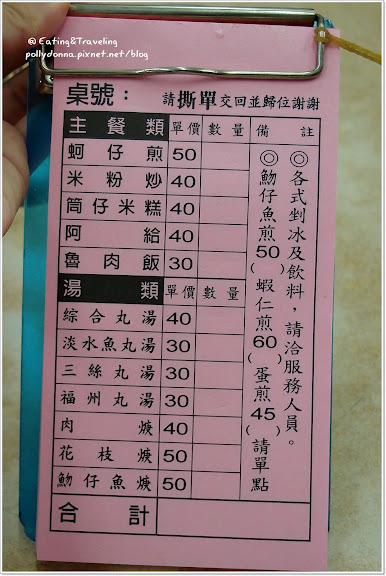 @ Eating&Traveling
pollydonna.pixnet.net/blog
桌號： 請撕單交回並歸位謝謝
主餐類 單價 數量 備註
蚵仔煎 50
米粉炒 40
筒仔米糕 40
阿給 40
魯肉飯 30
湯類 單價 數量
綜合丸湯 40
淡水魚丸湯 30
三絲丸湯 30
福州丸湯 30
肉焿 40
花枝焿 50
魩仔魚焿 50
合計
◎各式剉冰及飲料，請洽服務人員。
◎魩仔魚煎50( )蝦仁煎60( )蛋煎45( )請單點